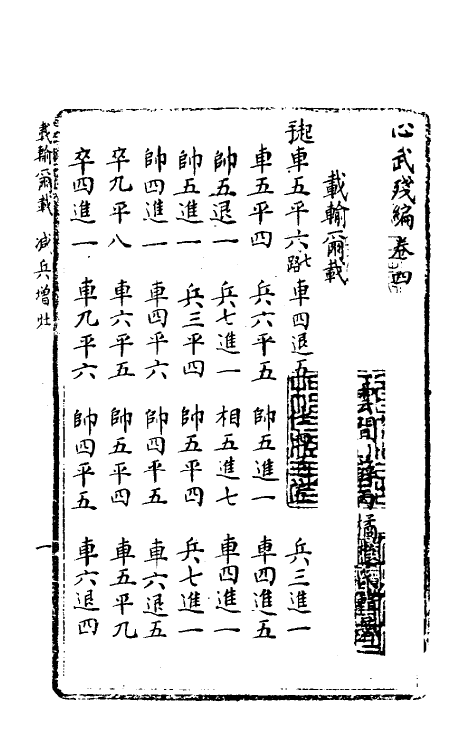 心武殘編卷四
雲間 薛丙 橘隱氏輯著
載輸爾載
起車五平六七路 車四退五 仕將五 兵三進一
車五平四 兵六平五 帥五進一 車四進五
帥五退一 兵七進一 相五進七 車四進一
帥五進一 兵三平四 帥五平四 兵七進一
帥四進一 車四平六 帥四平五 車六退五
卒九平八 車六平五 帥五平四 車五平九
卒四進一 車九平六 帥四平五 車六退四
載輸爾載 減兵增灶
一